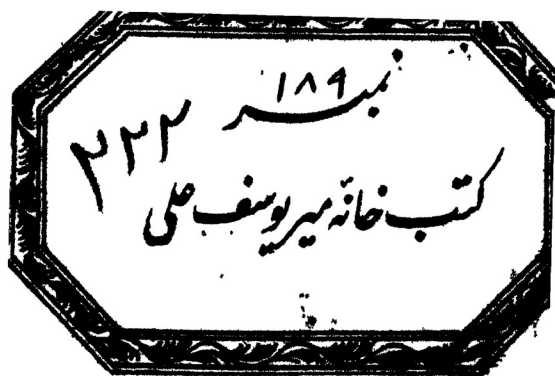 نمبر ۱۸۹
۲۲۲
کتب خانہ میر یوسف علی